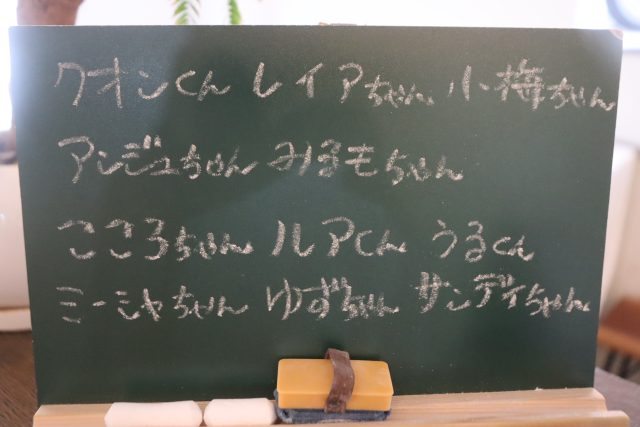 クオンくん レイアちゃん 小梅ちゃん
アンジュちゃん みるもちゃん
こころちゃん ルアくん うるくん
ミーミャちゃん ゆずちゃん サンディちゃん